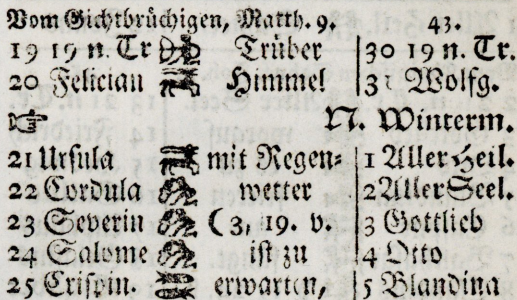 Vom Gichtbrüchigen, Matth. 9. 43.
19 19 n. Tr Trüber 30 19 n. Tr.
20 Felician Himmel 31 Wolfg.
N. Winterm.
21 Ursula mit Regen- 1 Aller Heil.
22 Cordula wetter 2 Aller Seel.
23 Severin ☾ 3, 19. v. 3 Gottlieb
24 Salome ist zu 4 Otto
25 Crispin. erwarten, 5 Blandina